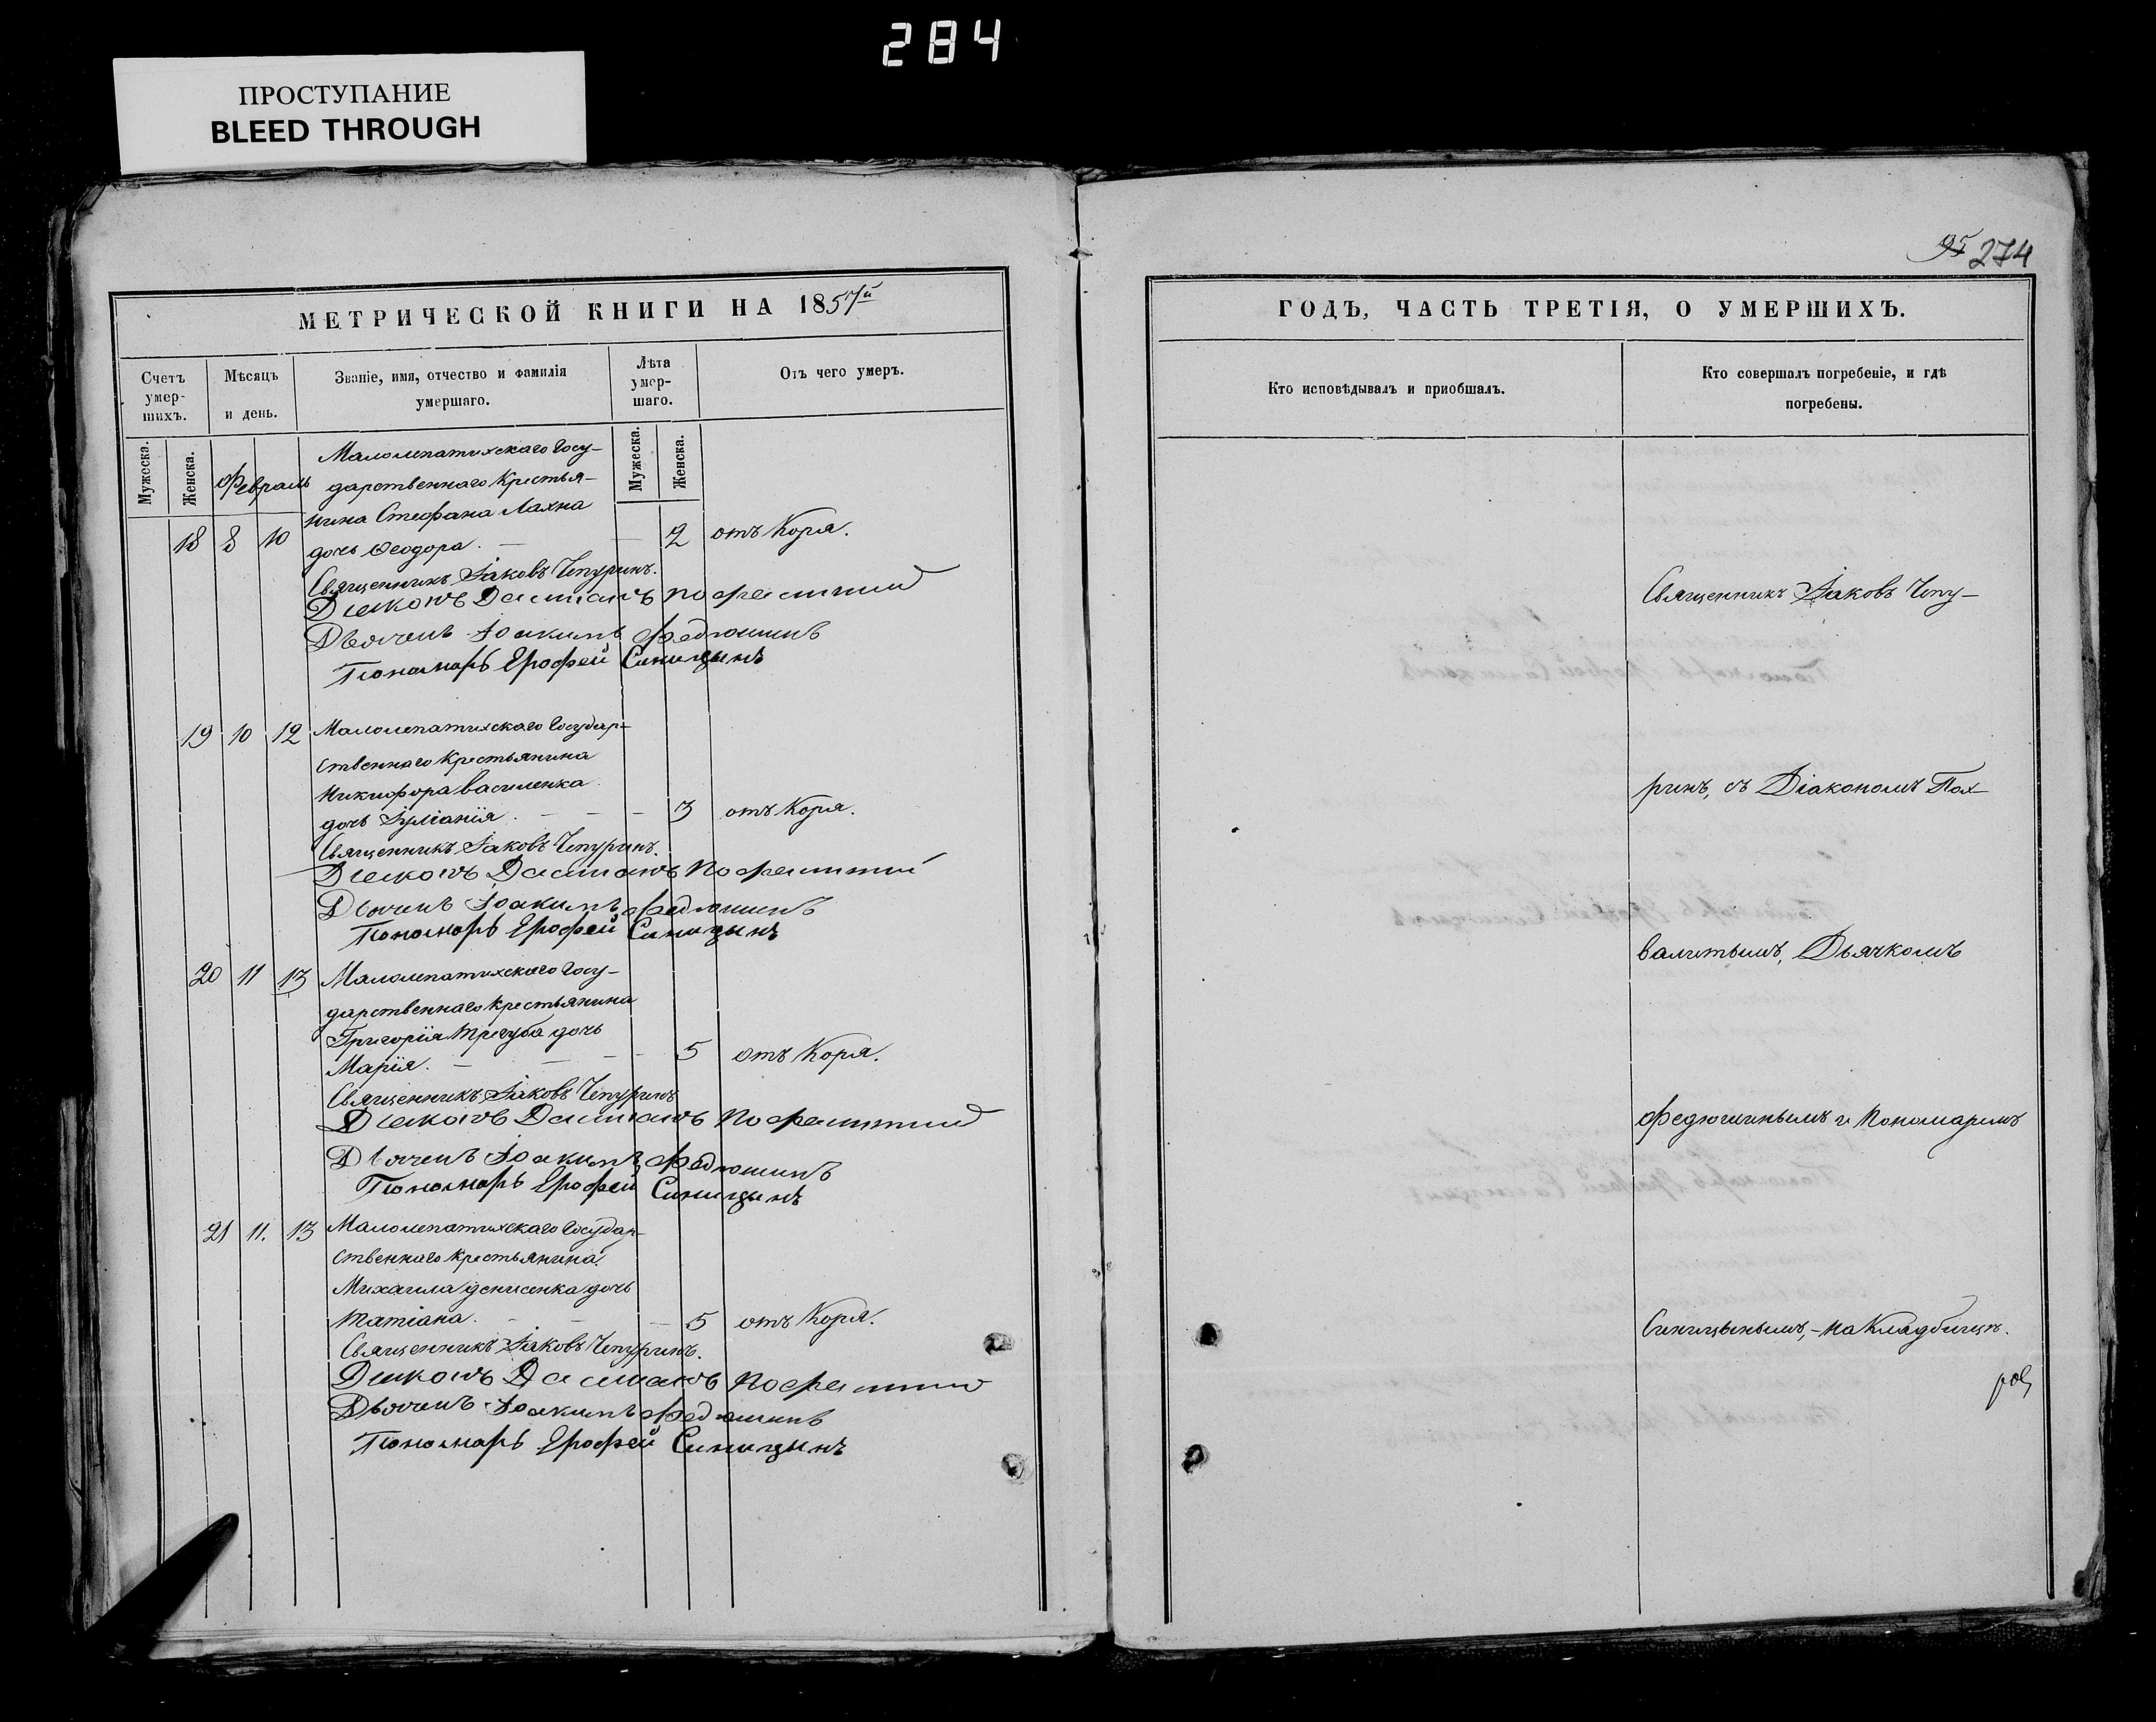 284
ПРОСТУПАНИЕ
BLEED THROUGH
95 274
МЕТРИЧЕСКОЙ КНИГИ НА 1857й
Счетъ умер-шихъ.
Мѣсяцъ и день.
Званіе, имя, отчество и фамилія умершаго.
Лѣта умер-шаго.
Отъ чего умеръ.
Мужеска.
Женска.
Февраль
Мужеска.
Женска.
Малолепатихскаго Госу-
дарственнаго Крестья-
нина Стефана Лахна
18 8 10 дочь Ѳеодора. — — 2 отъ Коря.
Священникъ Іаковъ Чепуринъ.
Діаконъ
Дьячекъ Іоакимъ Федюшинъ
Пономарь Ерофей Синицынъ
19 10 12 Малолепатихскаго Государ-
ственнаго Крестьянина
Никифора Василенка
дочь Іуліанія. — — — 3 отъ Коря.
Священникъ Іаковъ Чепуринъ.
Діаконъ
Дьячекъ Іоакимъ Федюшинъ
Пономарь Ерофей Синицынъ
20 11 13 Малолепатихскаго Госу-
дарственнаго Крестьянина
Григорія Трегуба дочь
Марія. — — — — 5 отъ Коря.
Священникъ Іаковъ Чепуринъ
Діаконъ
Дьячекъ Іоакимъ Федюшинъ
Пономарь Ерофей Синицынъ
21 11. 13 Малолепатихскаго Государ-
ственнаго Крестьянина
Михаила Денисенка дочь
Татіана. — — — 5 отъ Коря.
Священникъ Іаковъ Чепуринъ.
Діаконъ
Дьячекъ Іоакимъ Федюшинъ
Пономарь Ерофей Синицынъ
ГОДЪ, ЧАСТЬ ТРЕТІЯ, О УМЕРШИХЪ.
Кто исповѣдывалъ и пріобщалъ.
Кто совершалъ погребеніе, и гдѣ
погребены.
Священникъ Іаковъ Чепу-
ринъ, съ Діакономъ Пох-
валитымъ, Дьячкомъ
Федюшинымъ и Пономаремъ
Синицынымъ, – на Кладбищѣ.